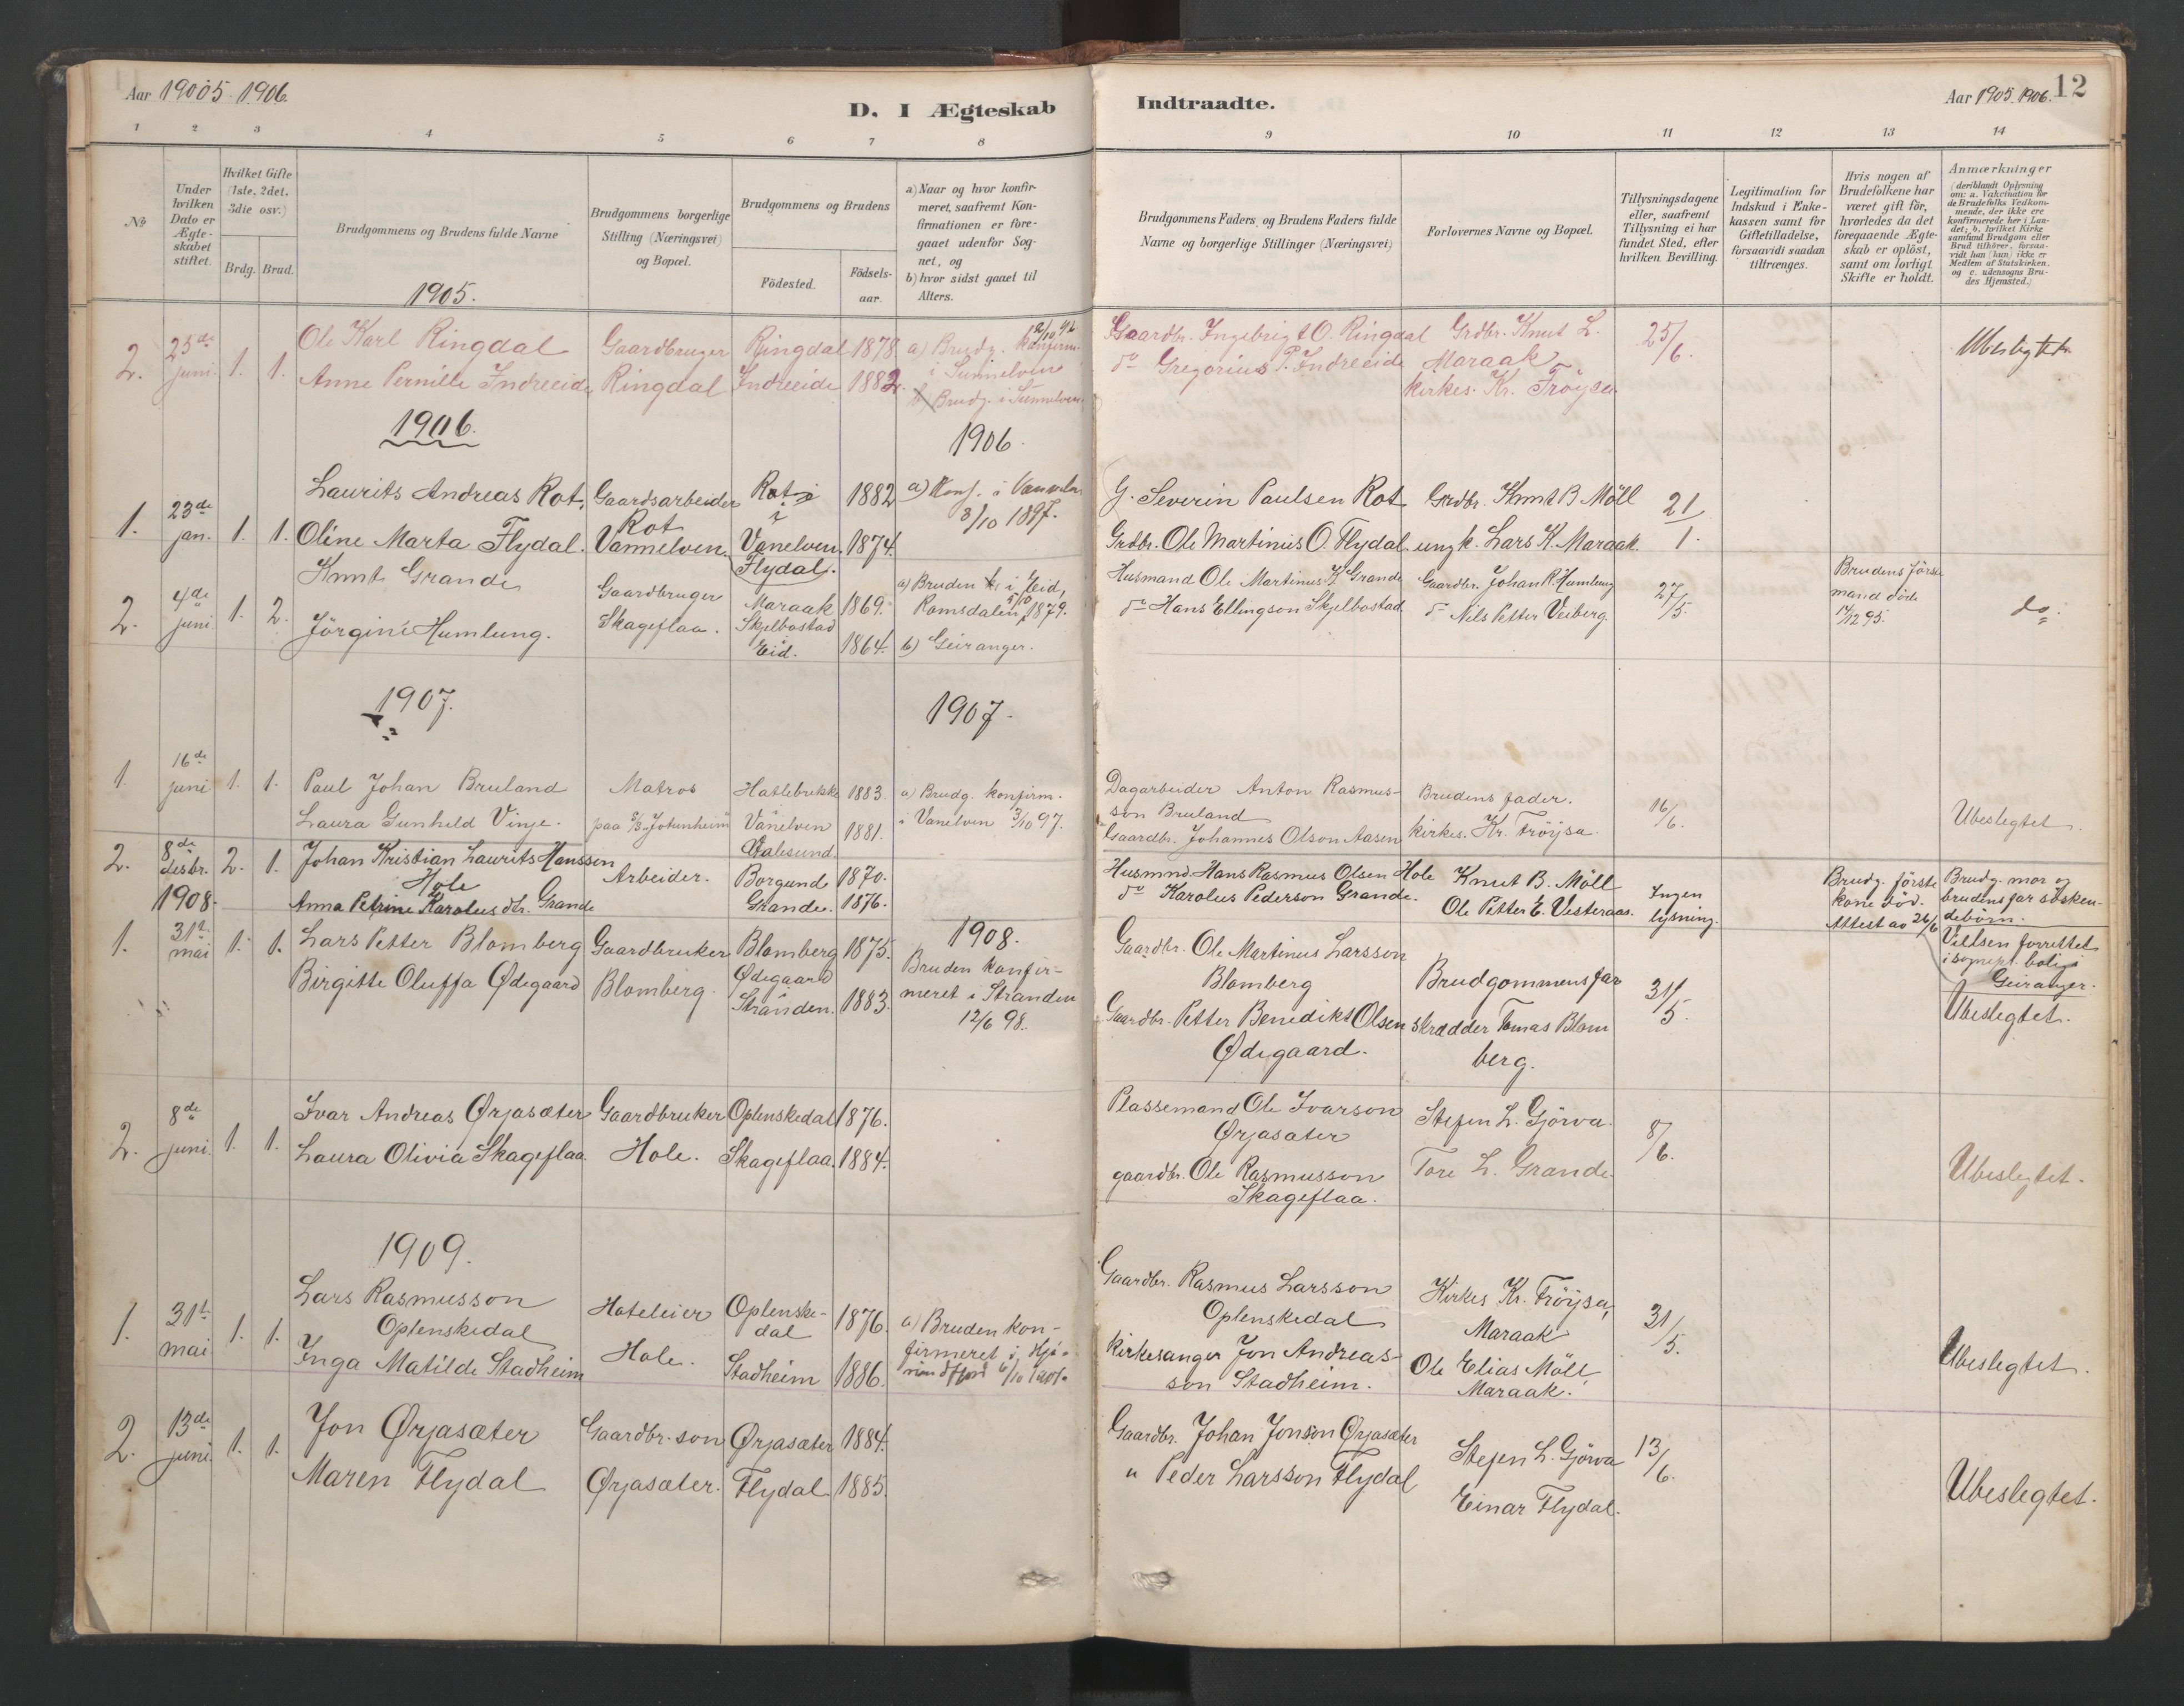 Aar 19005. 1906.
D. I Ægteskab
1 2 3 4 5 6 7 8
№
Under hvilken Dato er Ægteskabet stiftet.
Hvilket Gifte (1ste, 2det, 3die osv.)
Brdg. Brud.
Brudgommens og Brudens fulde Navne
Brudgommens borgerlige Stilling (Næringsvei) og Bopæl.
Brudgommens og Brudens
Födested.
Födselsaar.
a) Naar og hvor konfirmeret, saafremt Konfirmationen er foregaaet udenfor Sognet, og
b) hvor sidst gaaet til Alters.
1905.
2. 25de juni 1. 1.
Ole Karl Ringdal
Anne Pernille Indreeide
Gaardbruger
Ringdal
Ringdal 1878
Indreeide 1882.
a) Brudg. konfirm.
i Sunnelven
b) Brudg. i Sunnelven.
1906.
1906.
1. 23de jan. 1. 1.
Laurits Andreas Rot.
Oline Marta Flydal.
Gaardsarbeider
Rot
Vannelven.
Rot i
Vanelven. 1882
Flydal. 1874.
a) Konf. i Vanelven
3/10 1897.
2. 4de juni 1. 2.
Knut Grande
Jörgine Humlung.
Gaardbruger
Skageflaa.
Maraak 1869.
Skjelbostad
i
Eid. 1864.
a) Bruden i Eid,
Romsdalen, 5/10 1879.
b) Geiranger.
1907.
1907.
1. 16de juni 1. 1.
Paul Johan Bruland
Laura Gunheld Vinje.
Matros
paa S/S „Jotunheim"
Hatlebrekke 1883.
Vanelven
Aalesund. 1881.
a) Brudg. konfirm.
i Vanelven 3/10 97.
2. 8de desbr. 2. 1.
Johan Kristian Laurits Hansson
Hole
Anna Petrine Karolusdtr. Grande
Arbeider.
Borgund 1870.
Grande. 1876.
1908.
1908.
1. 31te mai 1. 1.
Lars Petter Blomberg
Birgitte Oluffa Ødegaard
Gaardbruker
Blomberg.
Blomberg 1875.
Ødegaard
i
Stranden. 1883.
Bruden konfirmeret i Stranden
12/6 98.
2. 8de juni. 1. 1.
Ivar Andreas Ørjasæter
Laura Olivia Skageflaa
Gaardbruker
Hole.
Oplenskedal 1876.
Skageflaa. 1884.
1909.
1. 31te mai 1. 1.
Lars Rasmusson
Oplenskedal
Inga Matilde Stadheim
Hoteleier
Hole.
Oplenskedal 1876.
Stadheim 1886.
a) Bruden konfirmeret i Hjörundfjord 6/10 1901.
2. 13de juni. 1. 1.
Jon Ørjasæter
Maren Flydal
Gaardbr.-son
Ørjasæter.
Ørjasæter 1884.
Flydal. 1885.
Indtraadte.
Aar 1905. 1906.
12
9 10 11 12 13 14
Brudgommens Faders og Brudens Faders fulde Navne og borgerlige Stillinger (Næringsvei)
Forlovernes Navne og Bopæl.
Tillysningsdagene eller, saafremt Tillysning ei har fundet Sted, efter hvilken Bevilling.
Legitimation for Indskud i Enkekassen samt for Giftetilladelse, forsaavidt saadan tiltrænges.
Hvis nogen af Brudefolkene har været gift för, hvorledes da det foregaaende Ægteskab er oplöst, samt om lovligt Skifte er holdt.
Anmærkninger
(deriblandt Oplysning om: a. Vakcination for de Brudefolks Vedkommende, der ikke ere konfirmerede her i Landet; b. hvilket Kirkesamfund Brudgom eller Brud tilhörer, forsaavidt han (hun) ikke er Medlem af Statskirken, og c. udensogns Brudes Hjemsted.)
Gaardbr. Ingebrigt O. Ringdal
do Gregorius P. Indreeide
Grdbr. Knut L.
Maraak
kirkes. Kr. Fröysa.
25/6.
Ubeslegtet
G. Severin Paulsen Rot
Grdbr. Ole Martinius O. Flydal.
Grdbr. Knut B. Möll
ungk. Lars K. Maraak.
21/1.
Husmand Ole Martinus K. Grande
do Hans Ellingson Skjelbostad
Gaardbr. Johan R. Humlung
do Nils Petter Vesberg.
27/5.
Brudens förste
mand döde
14/12 95.
do.
Dagarbeider Anton Rasmusson Bruland
Gaardbr. Johannes Olson Aasen
Brudens fader.
kirkes. Kr. Fröysa.
16/6.
Ubeslegtet.
Husmnd. Hans Rasmus Olsen Hole
do Karolus Pederson Grande.
Knut B. Möll
Ole Petter E. Vesteraas.
Ingen
lysning.
Brudg. förste
kone död.
Attest av 26/6
Brudg. mor og
brudens far söskendebörn.
Vielsen forrettet
i sognepr. bolig i
Geiranger.
Gaardbr. Ole Martinus Larsson
Blomberg
Gaardbr. Petter Benedikt Olsen
Ødegaard.
Brudgommens far
skrædder Tomas Blomberg.
31/5.
Ubeslegtet.
Plassemand Ole Ivarson
Ørjasæter
gaardbr. Ole Rasmusson
Skageflaa.
Stefen L. Gjörva.
Tore L. Grande.
8/6.
Ubeslegtet.
Gaardbr. Rasmus Larsson
Oplenskedal
Kirkesanger Jon Andreasson Stadheim.
Kirkes. Kr. Fröysa,
Maraak
Ole Elias Möll,
Maraak.
31/5.
Ubeslegtet.
Gaardbr. Johan Jonson Ørjasæter
" Peder Larsson Flydal
Stefen L. Gjörva
Einar Flydal.
13/6.
Ubeslegtet.